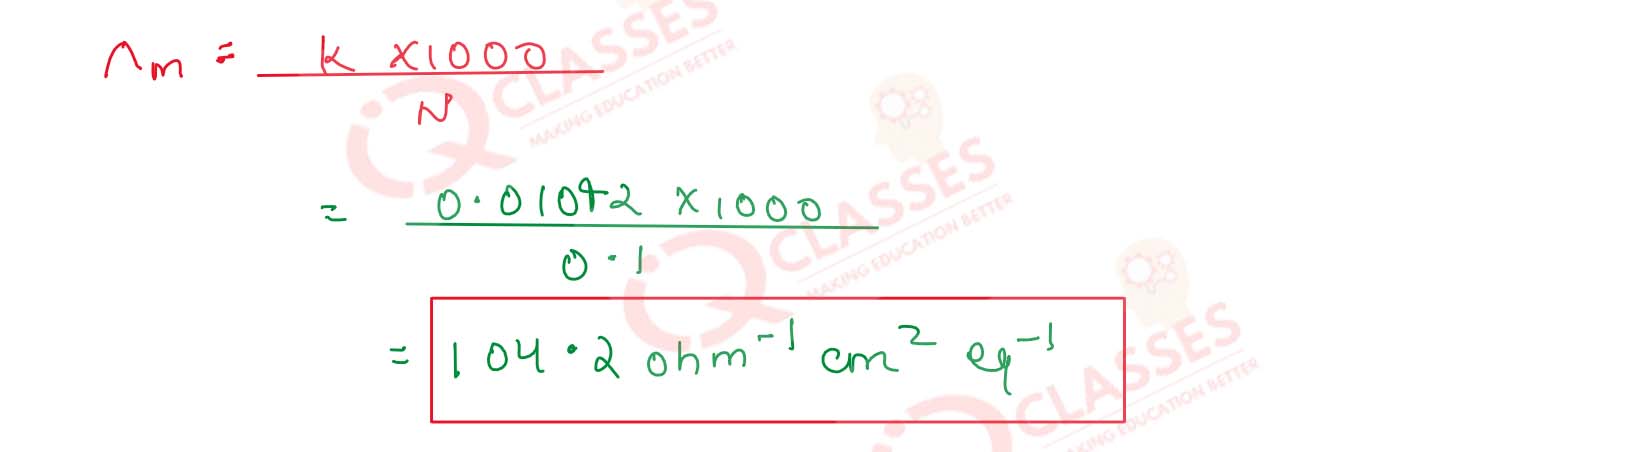 Λm = K × 1000
N
= 0.01042 × 1000
0.1
= 104.2 ohm⁻¹ cm² eq⁻¹
CLASSES
MAKING EDUCATION BETTER
CLASSES
MAKING EDUCATION BETTER
CLASSES
MAKING EDUCATION BETTER